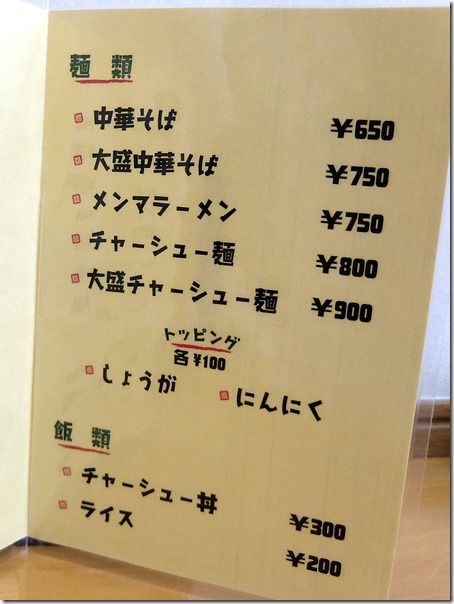 麺 類
中華そば ¥650
大盛中華そば ¥750
メンマラーメン ¥750
チャーシュー麺 ¥800
大盛チャーシュー麺 ¥900
トッピング
各¥100
しょうが にんにく
飯 類
チャーシュー丼 ¥300
ライス ¥200